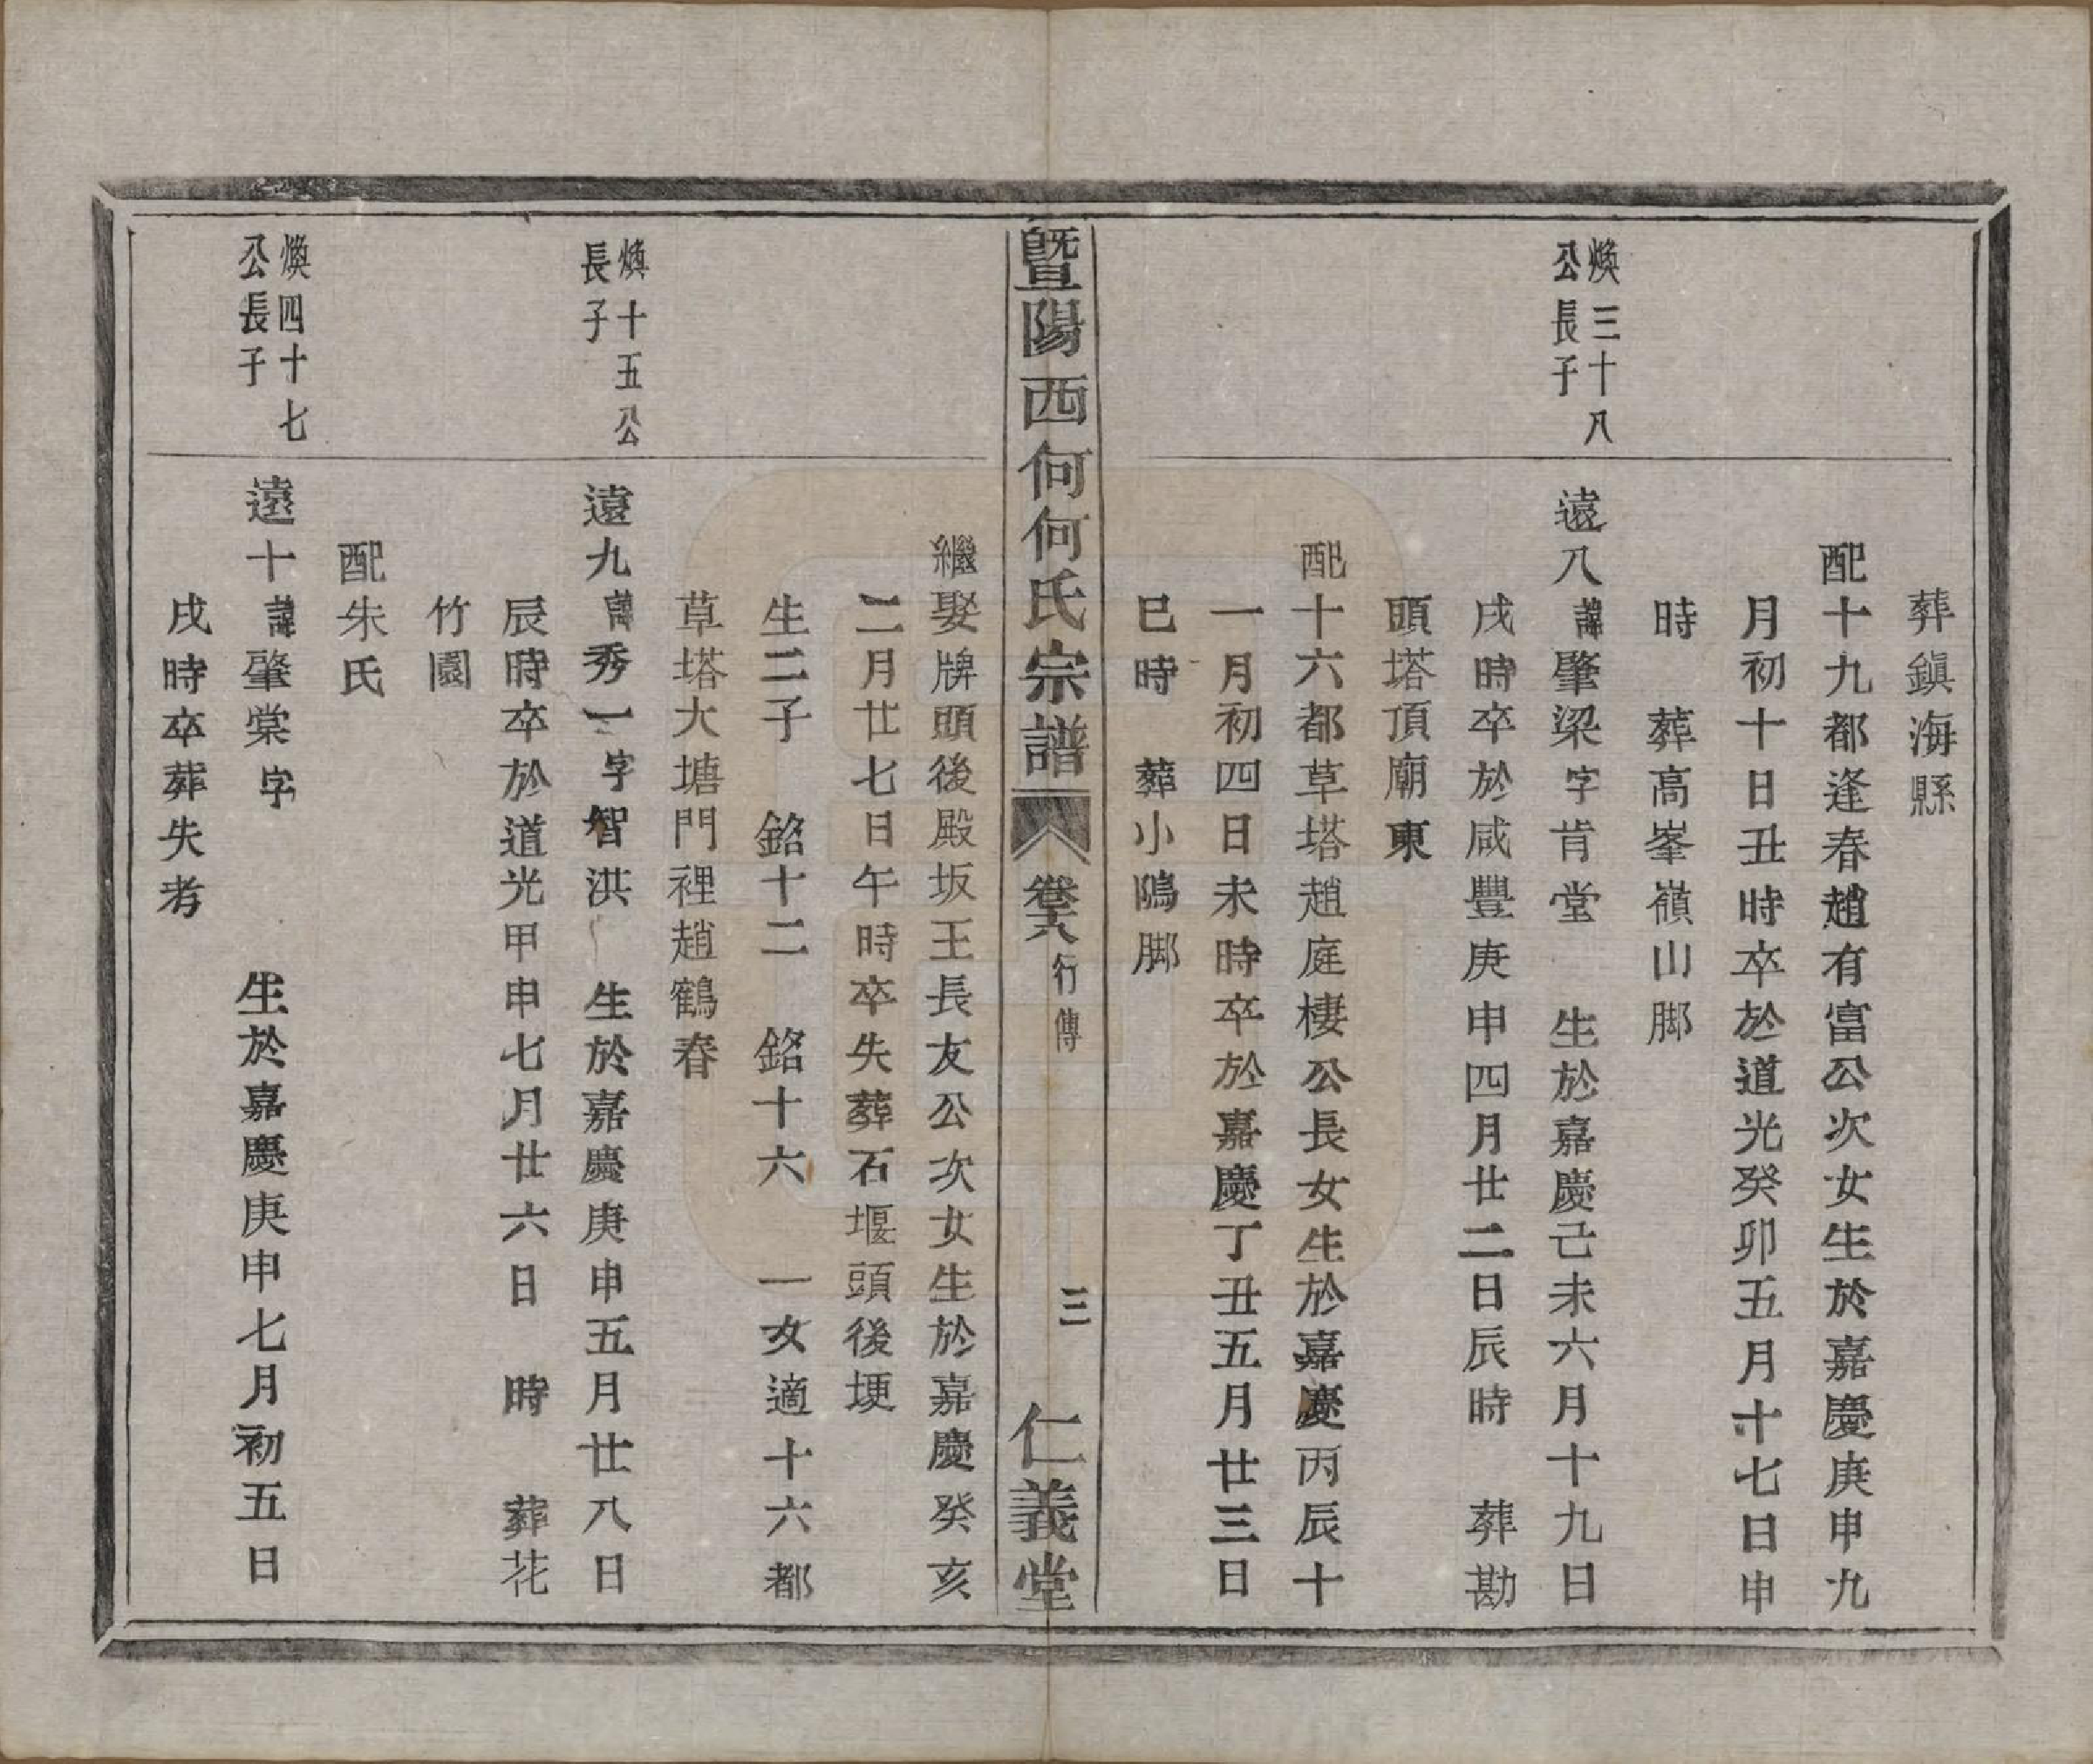 葬鎮海縣
配十九都逢春趙有富公次女生於嘉慶庚申九
月初十日丑時卒於道光癸卯五月十七日申
時　葬高峯嶺山脚
煥三十八
公長子
遠八諱肇梁字肯堂　生於嘉慶己未六月十九日
戌時卒於咸豐庚申四月廿二日辰時　葬勘
頭塔頂廟東
配十六都草塔趙庭棲公長女生於嘉慶丙辰十
一月初四日未時卒於嘉慶丁丑五月廿三日
巳時　葬小隝脚
暨陽西何何氏宗譜　卷六　行傳　三　仁義堂
繼娶牌頭後殿坂王長友公次女生於嘉慶癸亥
二月廿七日午時卒失葬石堰頭後埂
生二子　銘十二　銘十六　一女適十六都
草塔大塘門裡趙鶴春
煥十五公
長子
遠九諱秀一字智洪　生於嘉慶庚申五月廿八日
辰時卒於道光甲申七月廿六日　時　葬花
竹園
配朱氏
煥四十七
公長子
遠十諱肇棠字　生於嘉慶庚申七月初五日
戌時卒葬失考